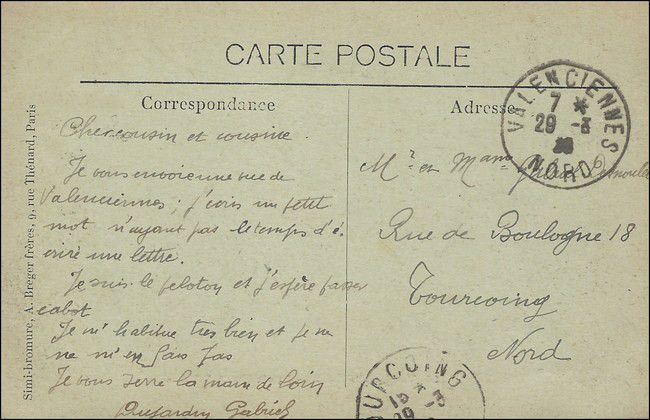 CARTE POSTALE
Correspondance
Cher cousin et cousine.
Je vous envoie une vue de
Valenciennes ; j'écris un petit
mot n'ayant pas le temps d'é-
crire une lettre.
Je suis le peloton et j'espère passer
cabot
Je m'habitue très bien et je ne
ne m'en fais pas
Je vous serre la main de loin
Dujardin Gabriel
Adresse
Mr et Mame
Rue de Boulogne 18
Tourcoing
Nord
VALENCIENNES
7 *
29 -3
NORD
TOURCOING
Simi-bromure, A. Breger frères, 9, rue Thénard, Paris